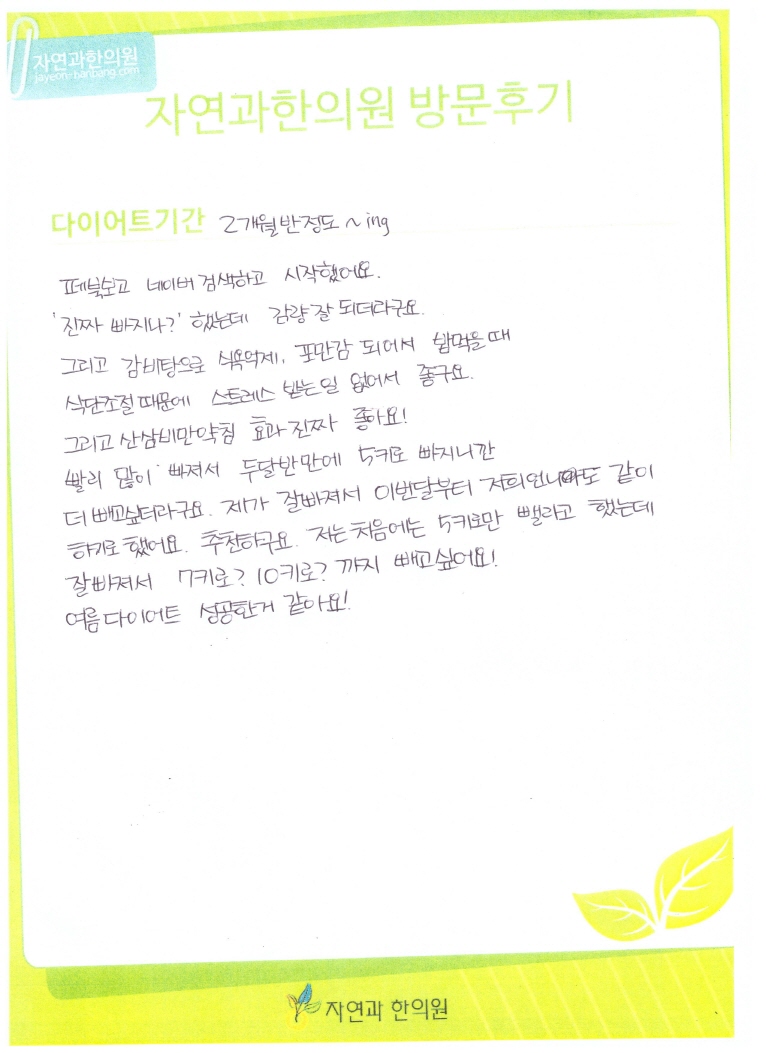 자연과한의원
jayeon-hanbang.com
자연과한의원 방문후기
다이어트기간 2개월반정도 ~ing
페북보고 네이버 검색하고 시작했어요.
'진짜 빠지나?' 했는데 감량 잘 되더라구요.
그리고 감비탕으로 식욕억제, 포만감 되어서 밥먹을때
식단조절 때문에 스트레스 받는일 없어서 좋구요.
그리고 산삼비만약침 효과 진짜 좋아요!
빨리 많이 빠져서 두달반만에 5키로 빠지니깐
더 빼고싶더라구요. 제가 잘빠져서 이번달부터 저희언니도 같이
하기로 했어요. 추천하구요. 저는 처음에는 5키로만 뺄라고 했는데
잘빠져서 7키로? 10키로? 까지 빼고싶어요!
여름다이어트 성공한거 같아요!
자연과 한의원